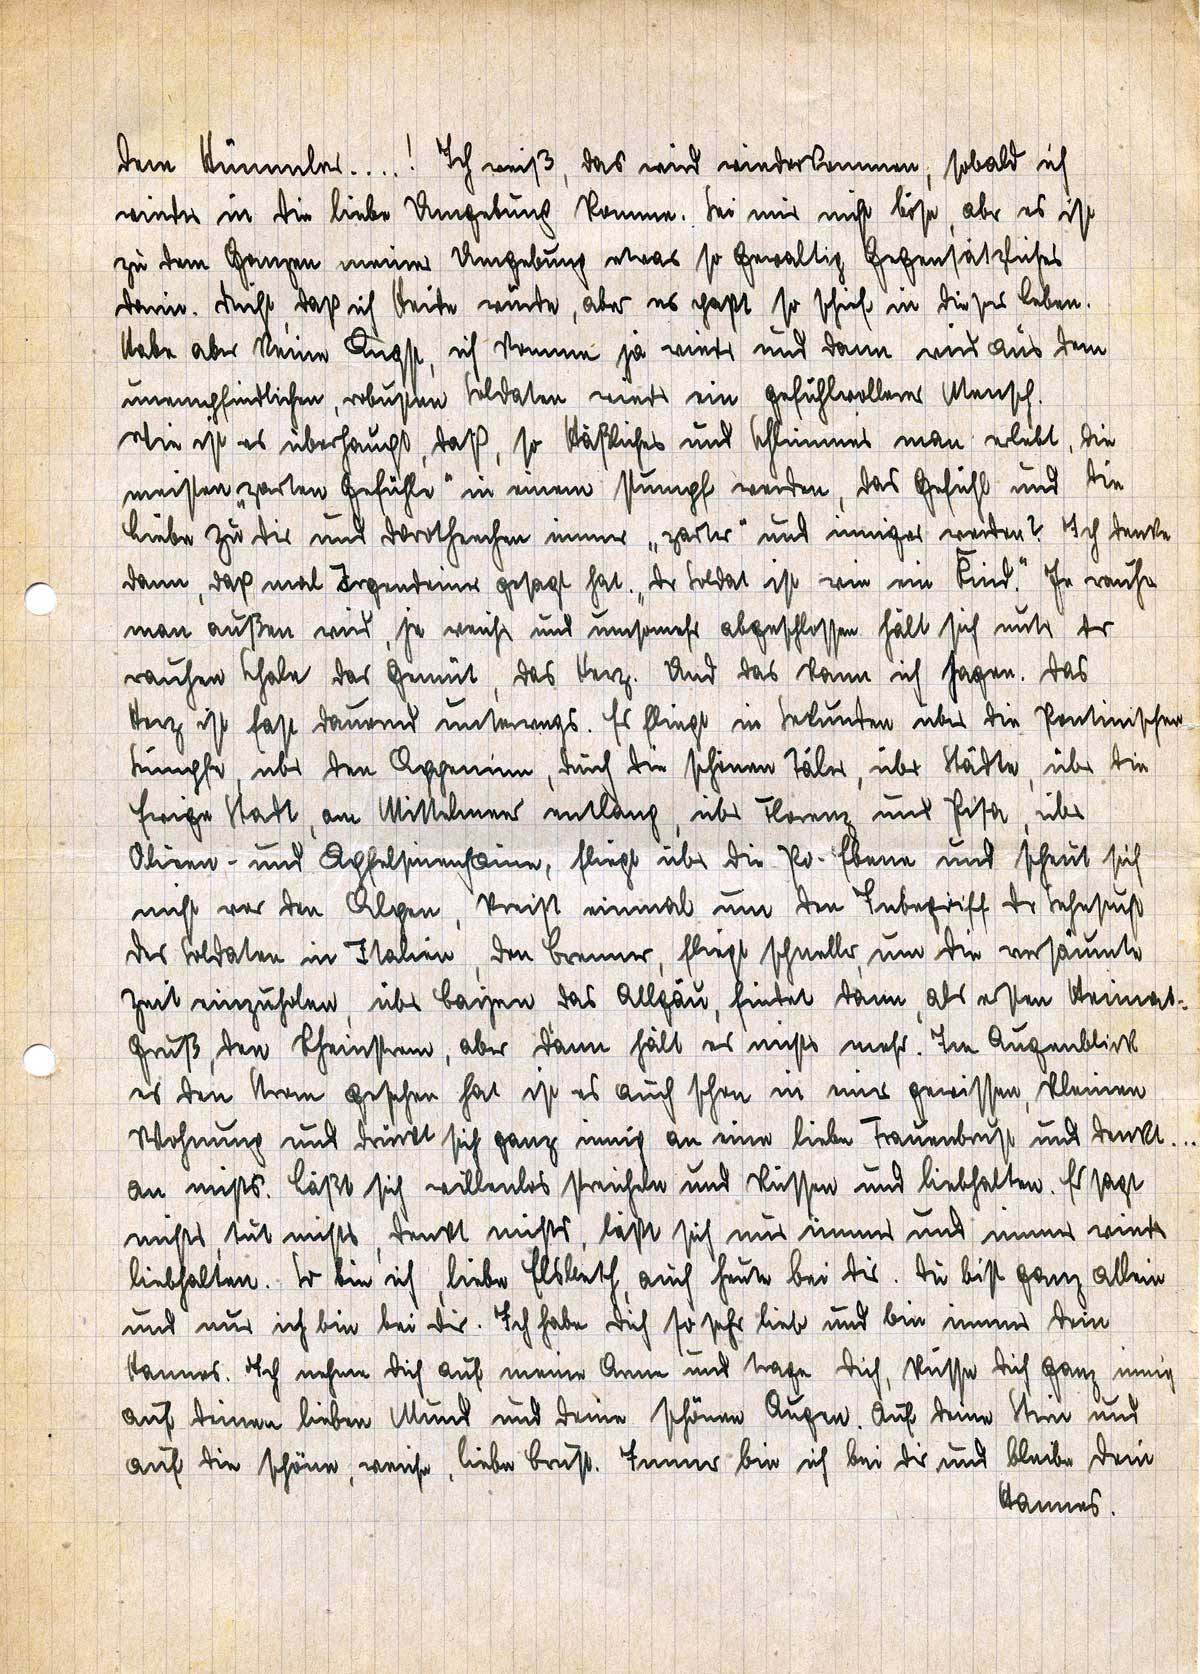 dem Kümmeler....! Ich weiß, das wird wiederkommen, sobald ich
wieder in die liebe Umgebung komme. Sei mir nicht böse, aber es ist
zu dem Ganzen meiner Umgebung etwas so gewaltig Gegensätzliches
darin. Nicht, daß ich leide würde, aber es paßt so schief in dieses Leben.
Habe aber keine Angst, ich komme ja wieder und dann wird aus dem
unempfindlichen, robusten Soldaten wieder ein gefühlvollerer Mensch.
Wie ist es überhaupt, daß, so Häßliches und Schlimmes man erlebt, die
meisten „zarten Gefühle" in einem stumpf werden, das Gefühl und die
Liebe zu Dir und Dorotheechen immer „zarter" und inniger werden? Ich denke
dann, daß mal Irgendeiner gesagt hat. „Der Soldat ist wie ein Kind." Je rauher
man außen wird, je weicher und umsomehr abgeschlossen hält sich unter der
rauhen Schale das Gemüt, das Herz. Und das kann ich sagen. Das
Herz ist fast dauernd unterwegs. Es fliegt in Sekunden über die Pontinischen
Sümpfe, über den Appenine, durch die schönen Täler, über Städte, über die
Ewige Stadt, am Mittelmeer entlang, über Florenz und Pisa, über
Oliven- und Apfelsinenhaine, fliegt über die Po-Ebene und scheut sich
nicht vor den Alpen, kreist einmal um den Inbegriff der Sehnsucht
des Soldaten in Italien, den Brenner, fliegt schneller, um die versäumte
Zeit einzuholen, über Bayern das Allgäu, findet dann, als ersten Heimat-
Gruß, den Rheinstrom, aber dann hält es nichts mehr. Im Augenblick
es den Strom gesehen hat ist es auch schon in einer gewissen, kleinen
Wohnung und drückt sich ganz innig an eine liebe Frauenbrust und denkt...
an nichts. Läßt sich willenlos streicheln und küssen und liebhalten. Es sagt
nichts, tut nichts, denkt nichts, läßt sich nur immer und immer wieder
liebhalten. So bin ich, liebe Elsbeth, auch heute bei Dir. Du bist ganz allein
und nur ich bin bei Dir. Ich habe Dich so sehr lieb und bin immer Dein
Hannes. Ich nehme Dich auf meine Arme und trage Dich, küsse Dich ganz innig
auf deinen lieben Mund und deine schönen Augen. Auf deine Stirn und
auf die schöne, weiche, liebe Brust. Immer bin ich bei Dir und bleibe Dein
Hannes.